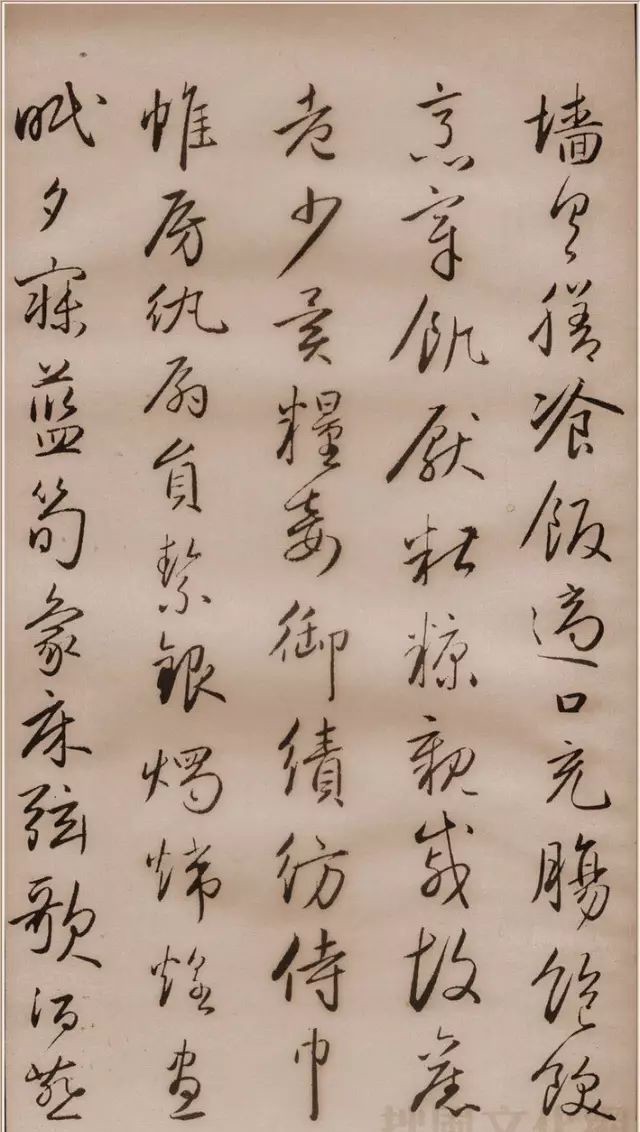 墙具膳飡飯適口充腸飽飫
烹宰飢厭糟糠親戚故舊
老少異糧妾御績紡侍巾
帷房紈扇員絜銀燭煒煌晝
眠夕寐藍筍象床弦歌酒燕